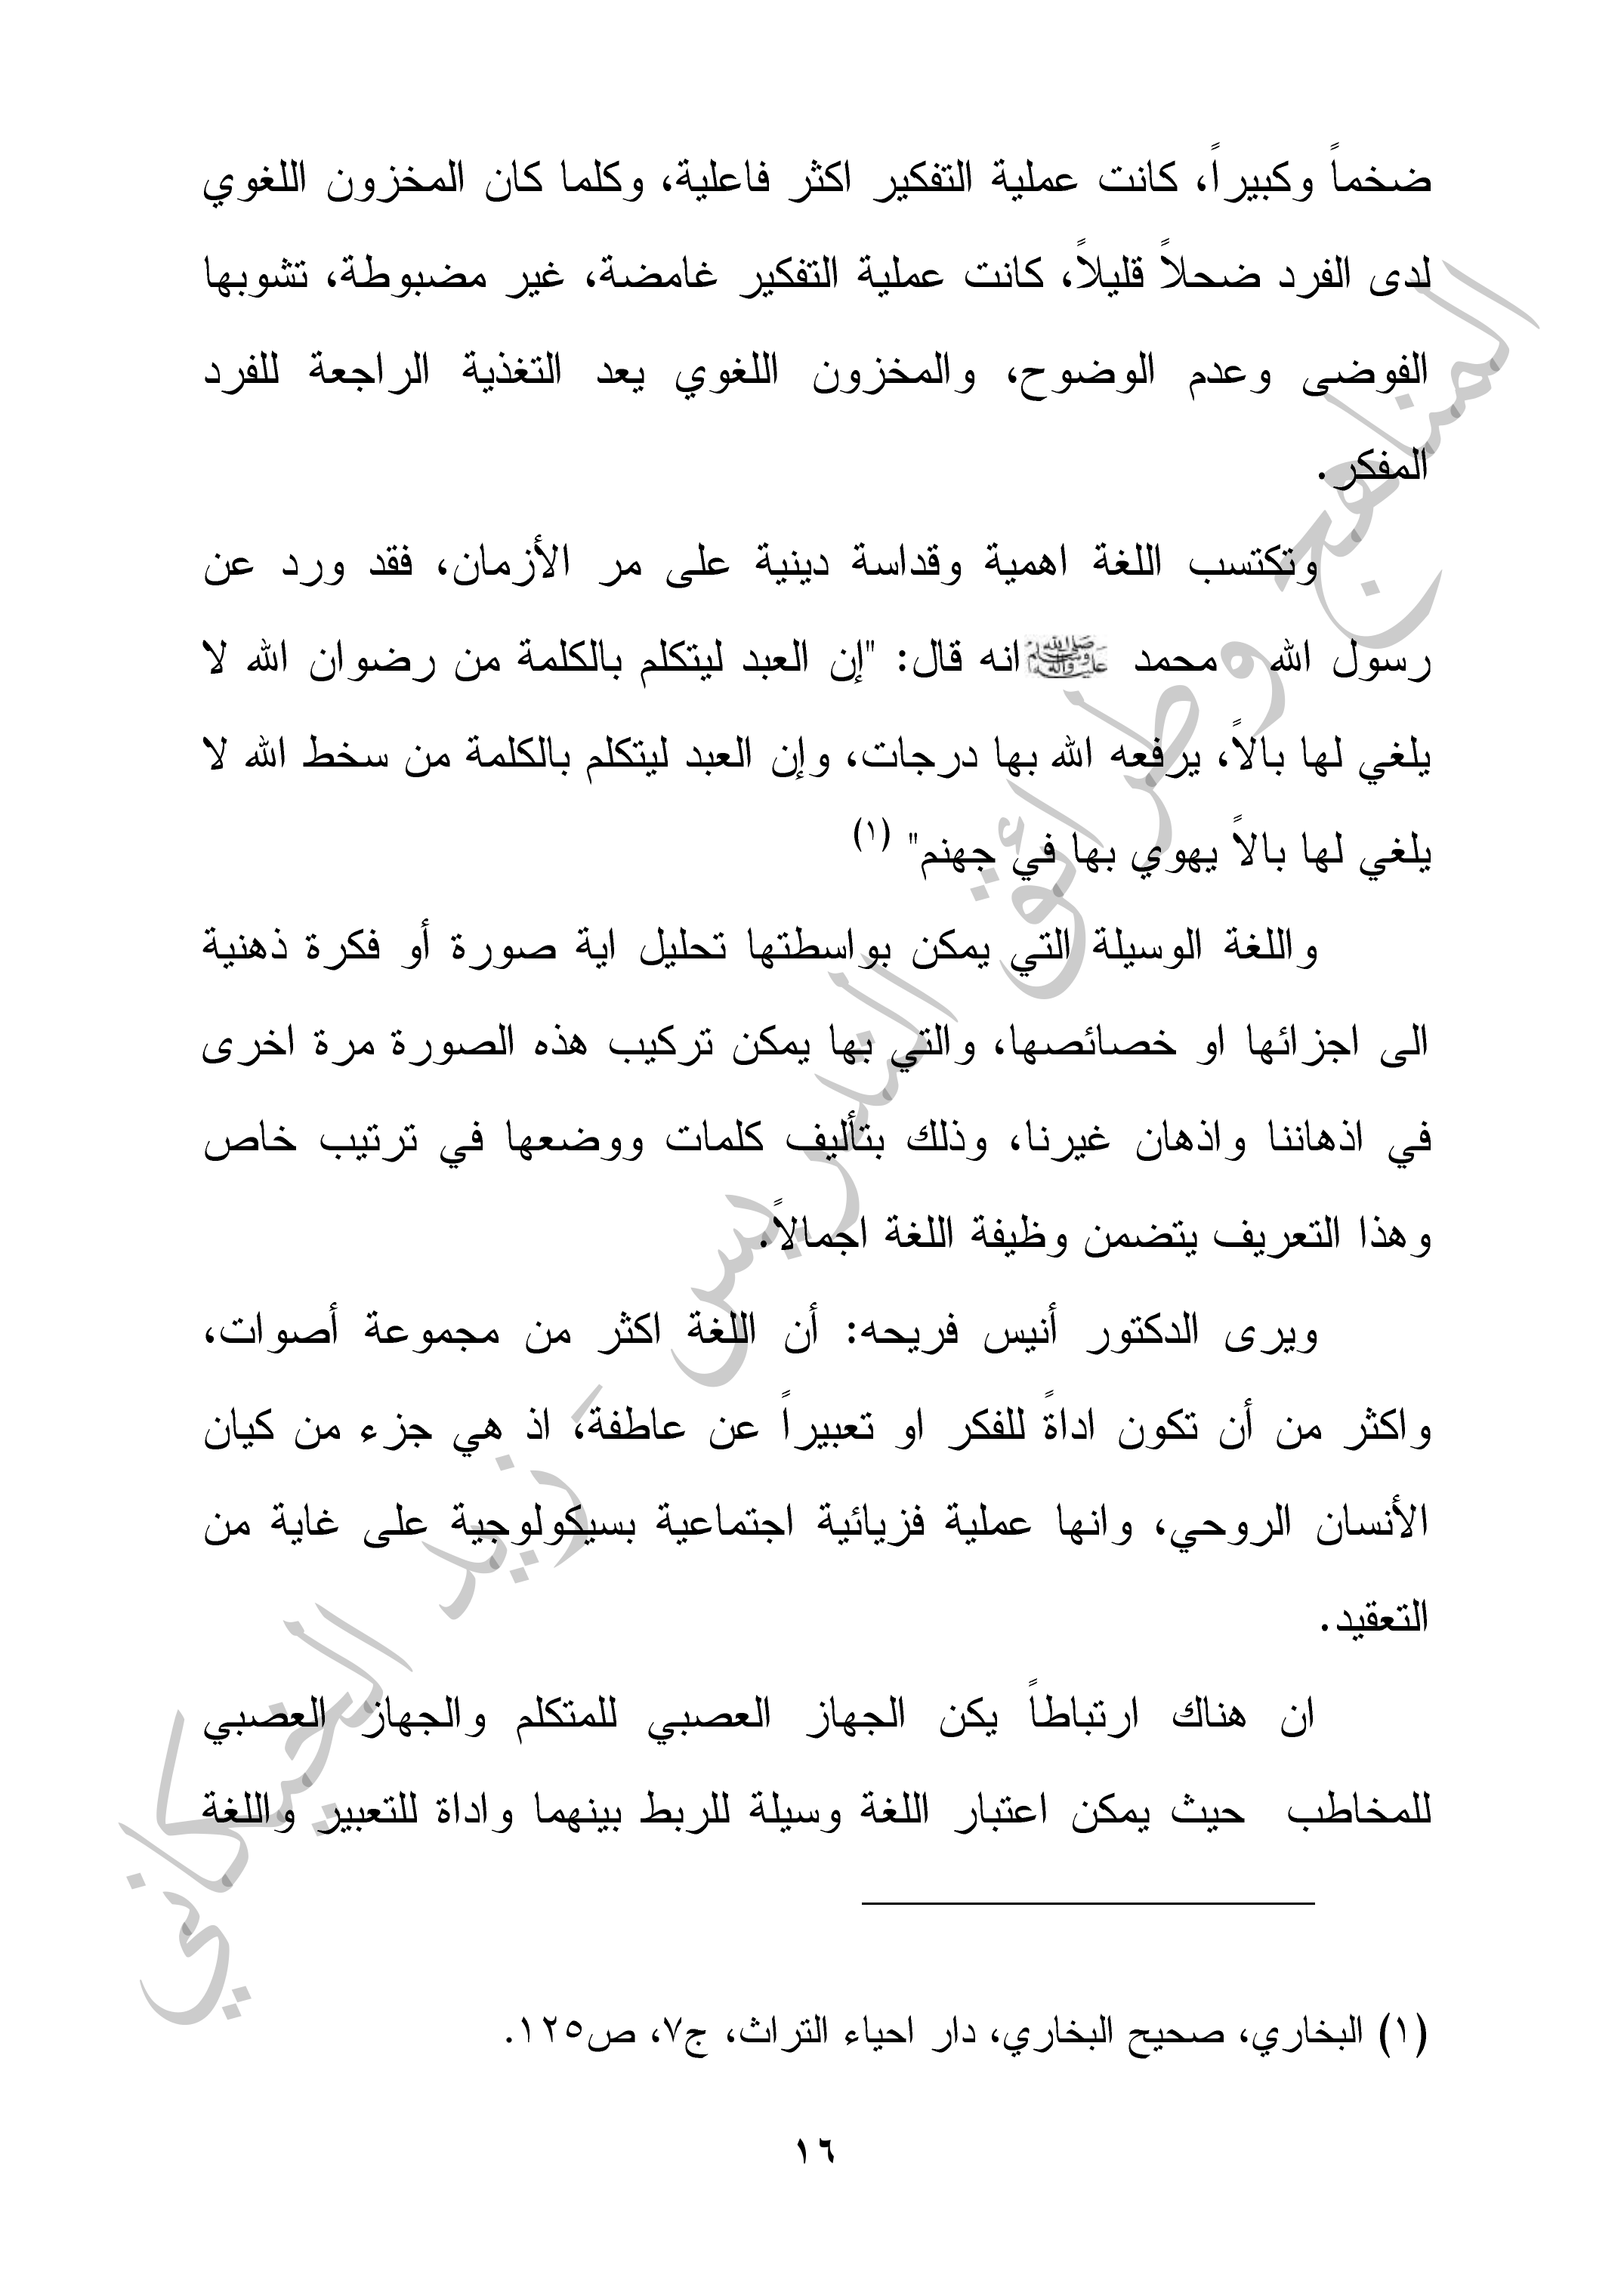 ضخماً وكبيراً، كانت عملية التفكير اكثر فاعلية، وكلما كان المخزون اللغوي
لدى الفرد ضحلاً قليلاً، كانت عملية التفكير غامضة، غير مضبوطة، تشوبها
الفوضى وعدم الوضوح، والمخزون اللغوي يعد التغذية الراجعة للفرد
المفكر.
وتكتسب اللغة اهمية وقداسة دينية على مر الأزمان، فقد ورد عن
رسول الله محمد صلى الله عليه وآله وسلم انه قال: "إن العبد ليتكلم بالكلمة من رضوان الله لا
يلغي لها بالاً، يرفعه الله بها درجات، وإن العبد ليتكلم بالكلمة من سخط الله لا
يلغي لها بالاً يهوي بها في جهنم" (١)
واللغة الوسيلة التي يمكن بواسطتها تحليل اية صورة أو فكرة ذهنية
الى اجزائها او خصائصها، والتي بها يمكن تركيب هذه الصورة مرة اخرى
في اذهاننا واذهان غيرنا، وذلك بتأليف كلمات ووضعها في ترتيب خاص
وهذا التعريف يتضمن وظيفة اللغة اجمالاً.
ويرى الدكتور أنيس فريحه: أن اللغة اكثر من مجموعة أصوات،
واكثر من أن تكون اداةً للفكر او تعبيراً عن عاطفة، اذ هي جزء من كيان
الأنسان الروحي، وانها عملية فزيائية اجتماعية بسيكولوجية على غاية من
التعقيد.
ان هناك ارتباطاً يكن الجهاز العصبي للمتكلم والجهاز العصبي
للمخاطب حيث يمكن اعتبار اللغة وسيلة للربط بينهما واداة للتعبير واللغة
(١) البخاري، صحيح البخاري، دار احياء التراث، ج٧، ص١٢٥.
١٦
المناهج وطرائق التدريس - زيد الخيكاني